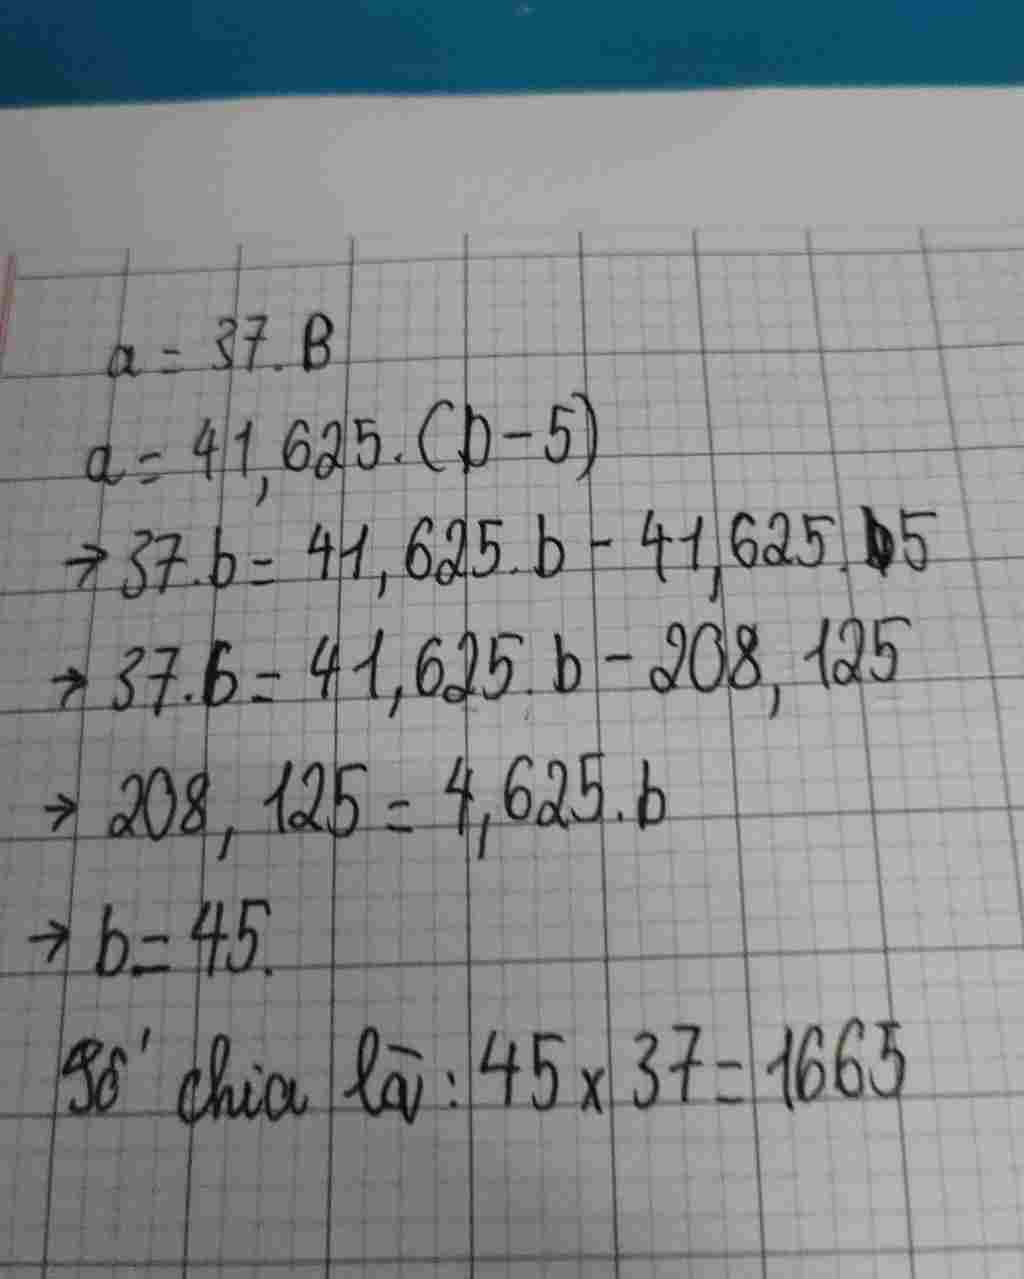 a = 37.B
a = 41,625.(b-5)
→ 37.b = 41,625.b - 41,625.5
→ 37.b = 41,625.b - 208,125
→ 208,125 = 4,625.b
→ b = 45.
Số chia là: 45 x 37 = 1665